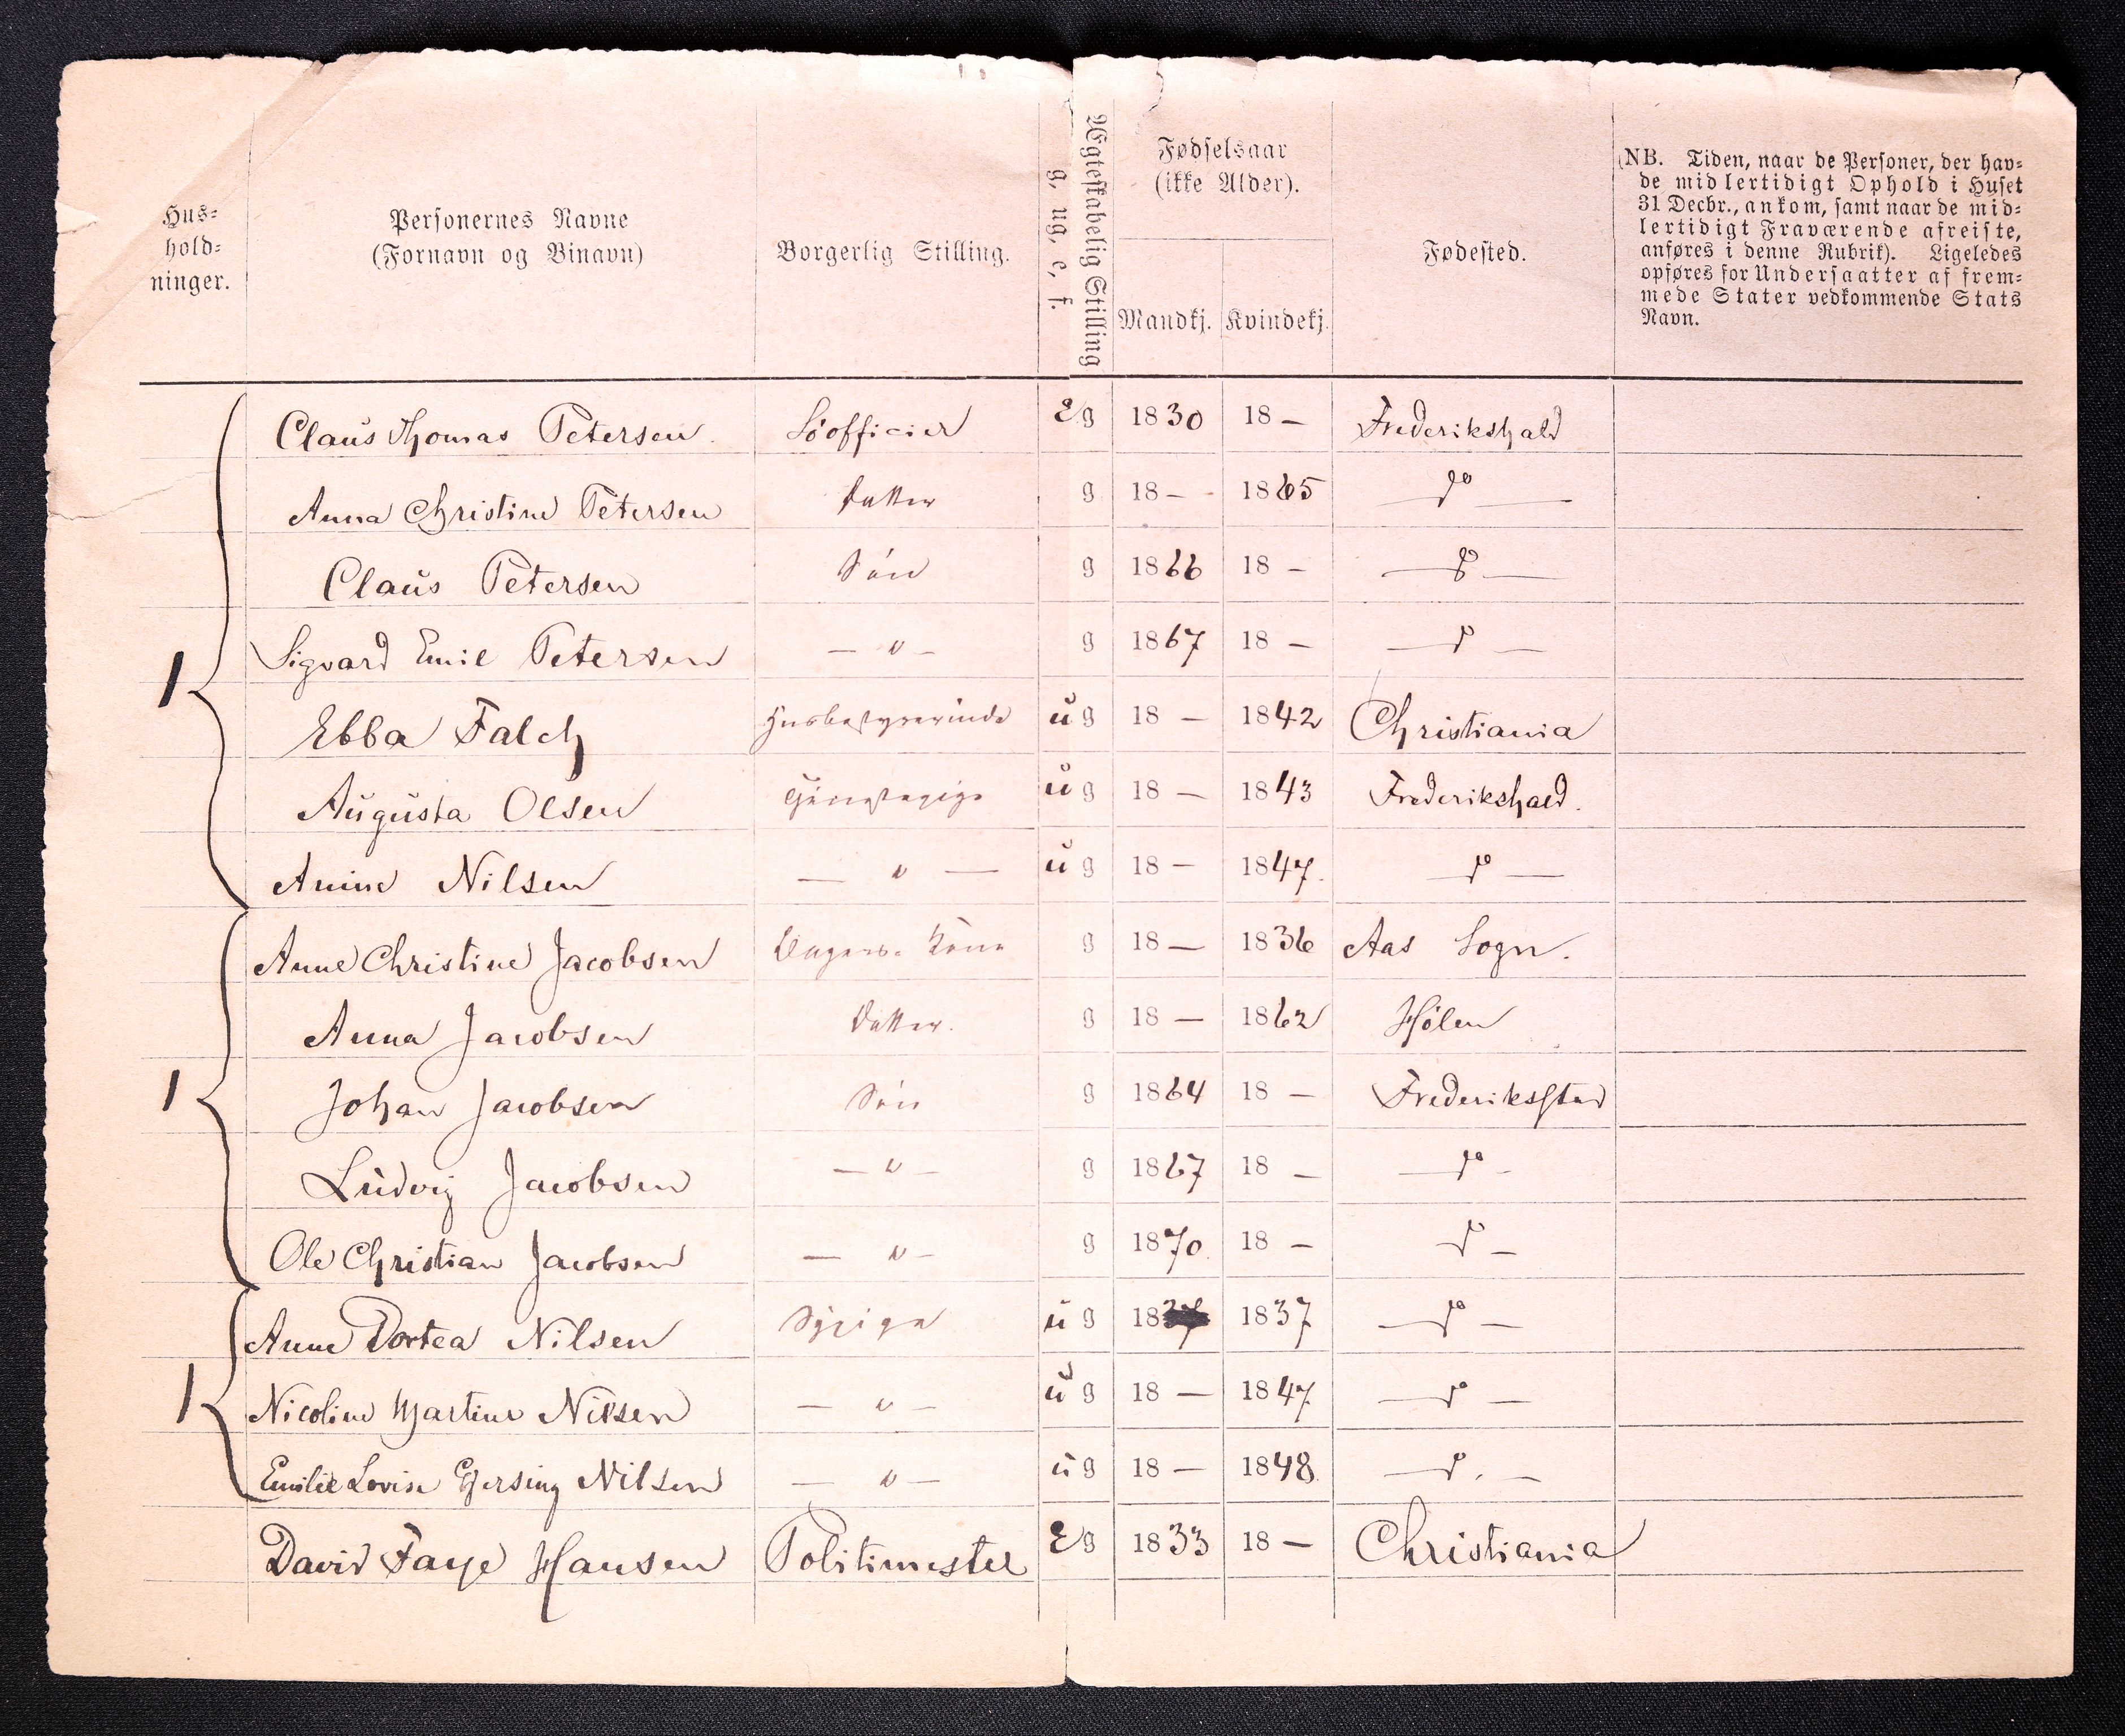 Hus-
hold-
ninger.
Personernes Navne
(Fornavn og Binavn)
Borgerlig Stilling.
Ægteskabelig Stilling
g, ug, e, f.
Fødselsaar
(ikke Alder).
Mandkj. Kvindekj.
Fødested.
(NB. Tiden, naar de Personer, der hav-
de midlertidigt Ophold i Huset
31 Decbr., ankom, samt naar de mid-
lertidigt Fraværende afreiste,
anføres i denne Rubrik). Ligeledes
opføres for Undersaatter af frem-
mede Stater vedkommende Stats
Navn.
Claus Thomas Petersen Söofficier Eg 1830 18 — Frederikshald
Anna Christine Petersen Datter g 18 — 1865 — do —
Claus Petersen Sön g 1866 18 — — do —
1 Sigvard Emil Petersen — " — g 1867 18 — — do —
Ebba Falch Husbestyrerinde ug 18 — 1842 Christiania
Augusta Olsen Tjenestepige ug 18 — 1843 Frederikshald.
Anine Nilsen — " — ug 18 — 1847. — do —
Anne Christine Jacobsen Kone g 18 — 1836 Aas Sogn.
Anna Jacobsen Datter. g 18 — 1862 Hölen
1 Johan Jacobsen Sön g 1864 18 — Frederiksstad
Ludvig Jacobsen — " — g 1867 18 — — do —
Ole Christian Jacobsen — " — g 1870. 18 — — do —
Anne Dortea Nilsen Sypige ug 18 1837 — do —
1 Nicoline Martine Nilsen — " — ug 18 — 1847. — do —
Emilie Lovise Gjersing Nilsen — " — ug 18 — 1848. — do —
David Faye Hansen Politimester Eg 1833 18 — Christiania